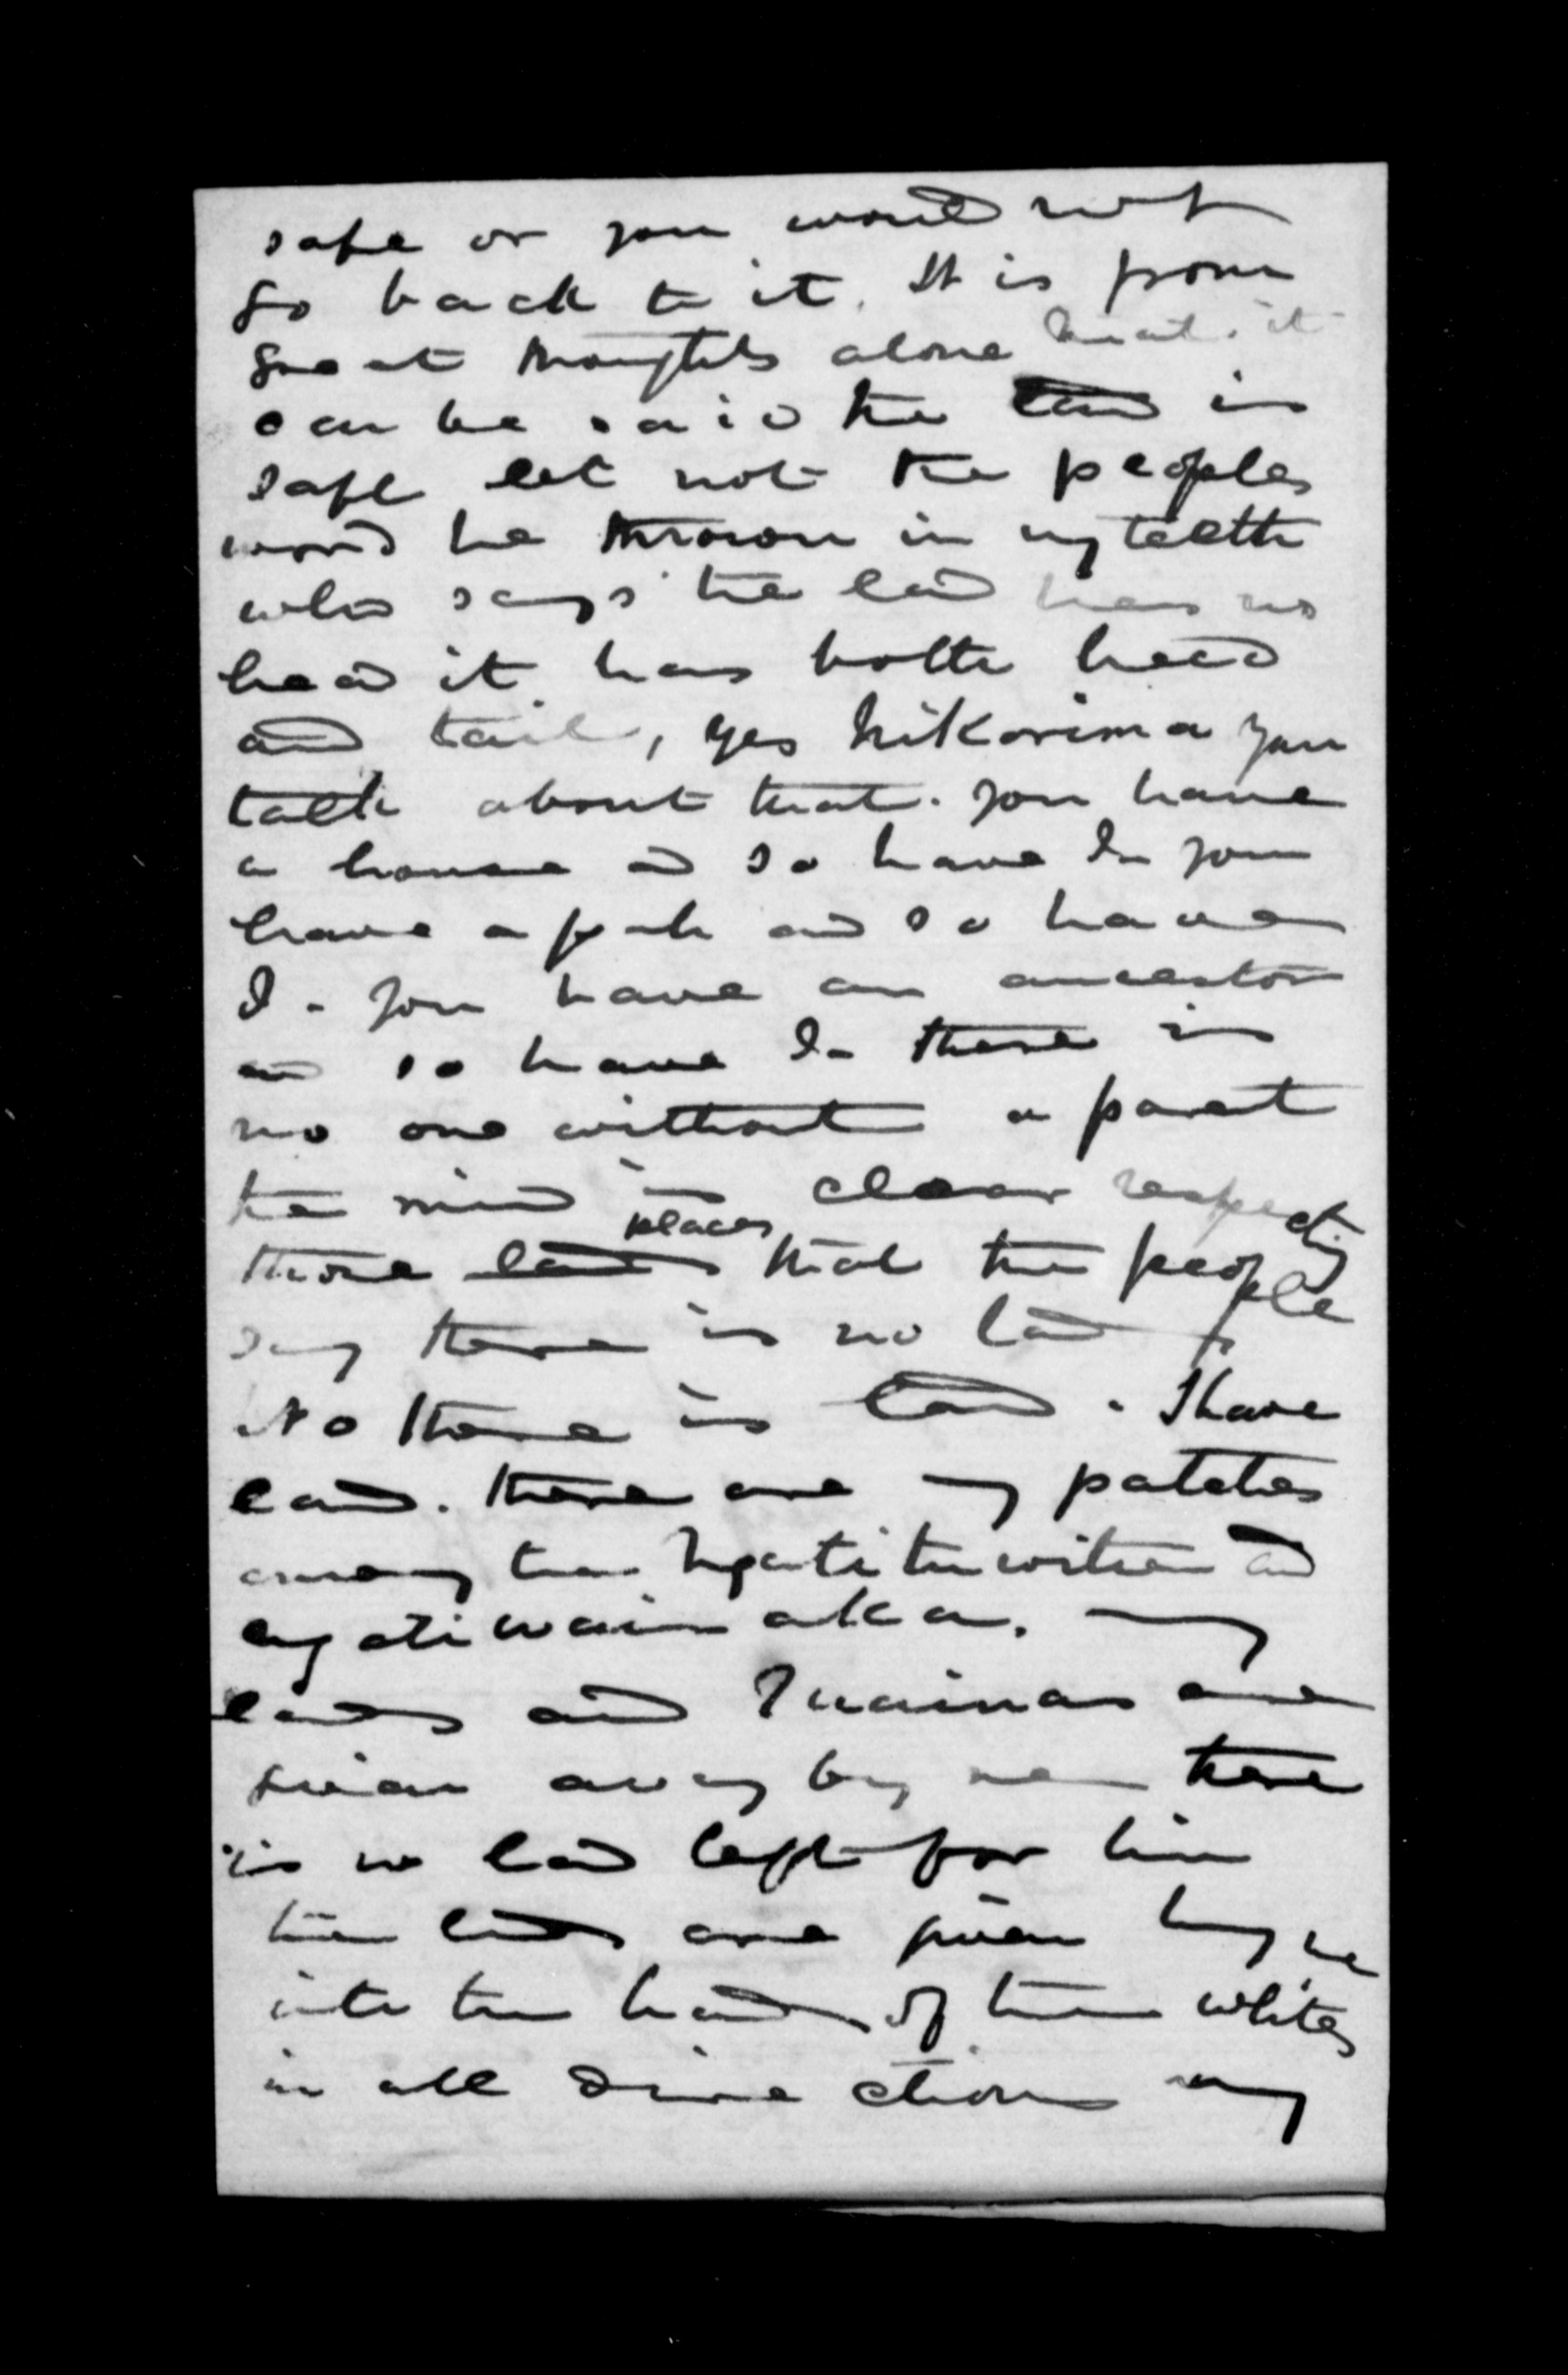 safe or you would not
go back to it. It is from
great thoughts alone that it
can be said the land is
safe let not the peoples
word be thrown in my teeth
who says the land has no
head it has both head
and tail, yes hikorima you
talk about that. you have
a house and so have I you
have a pah and so have
I - you have an ancestor
and so have I - there is
no one without a parent
the mind is clear respecting
those lands places that the people
say there is no land
No there is land. I have
land. there are my patches
among the Ngatituwiti and
ngatiwainaka. my
lands and Tuainas are
given away by me there
is no land left for him
the lands are given by me
into the hands of the whites
in all directions my